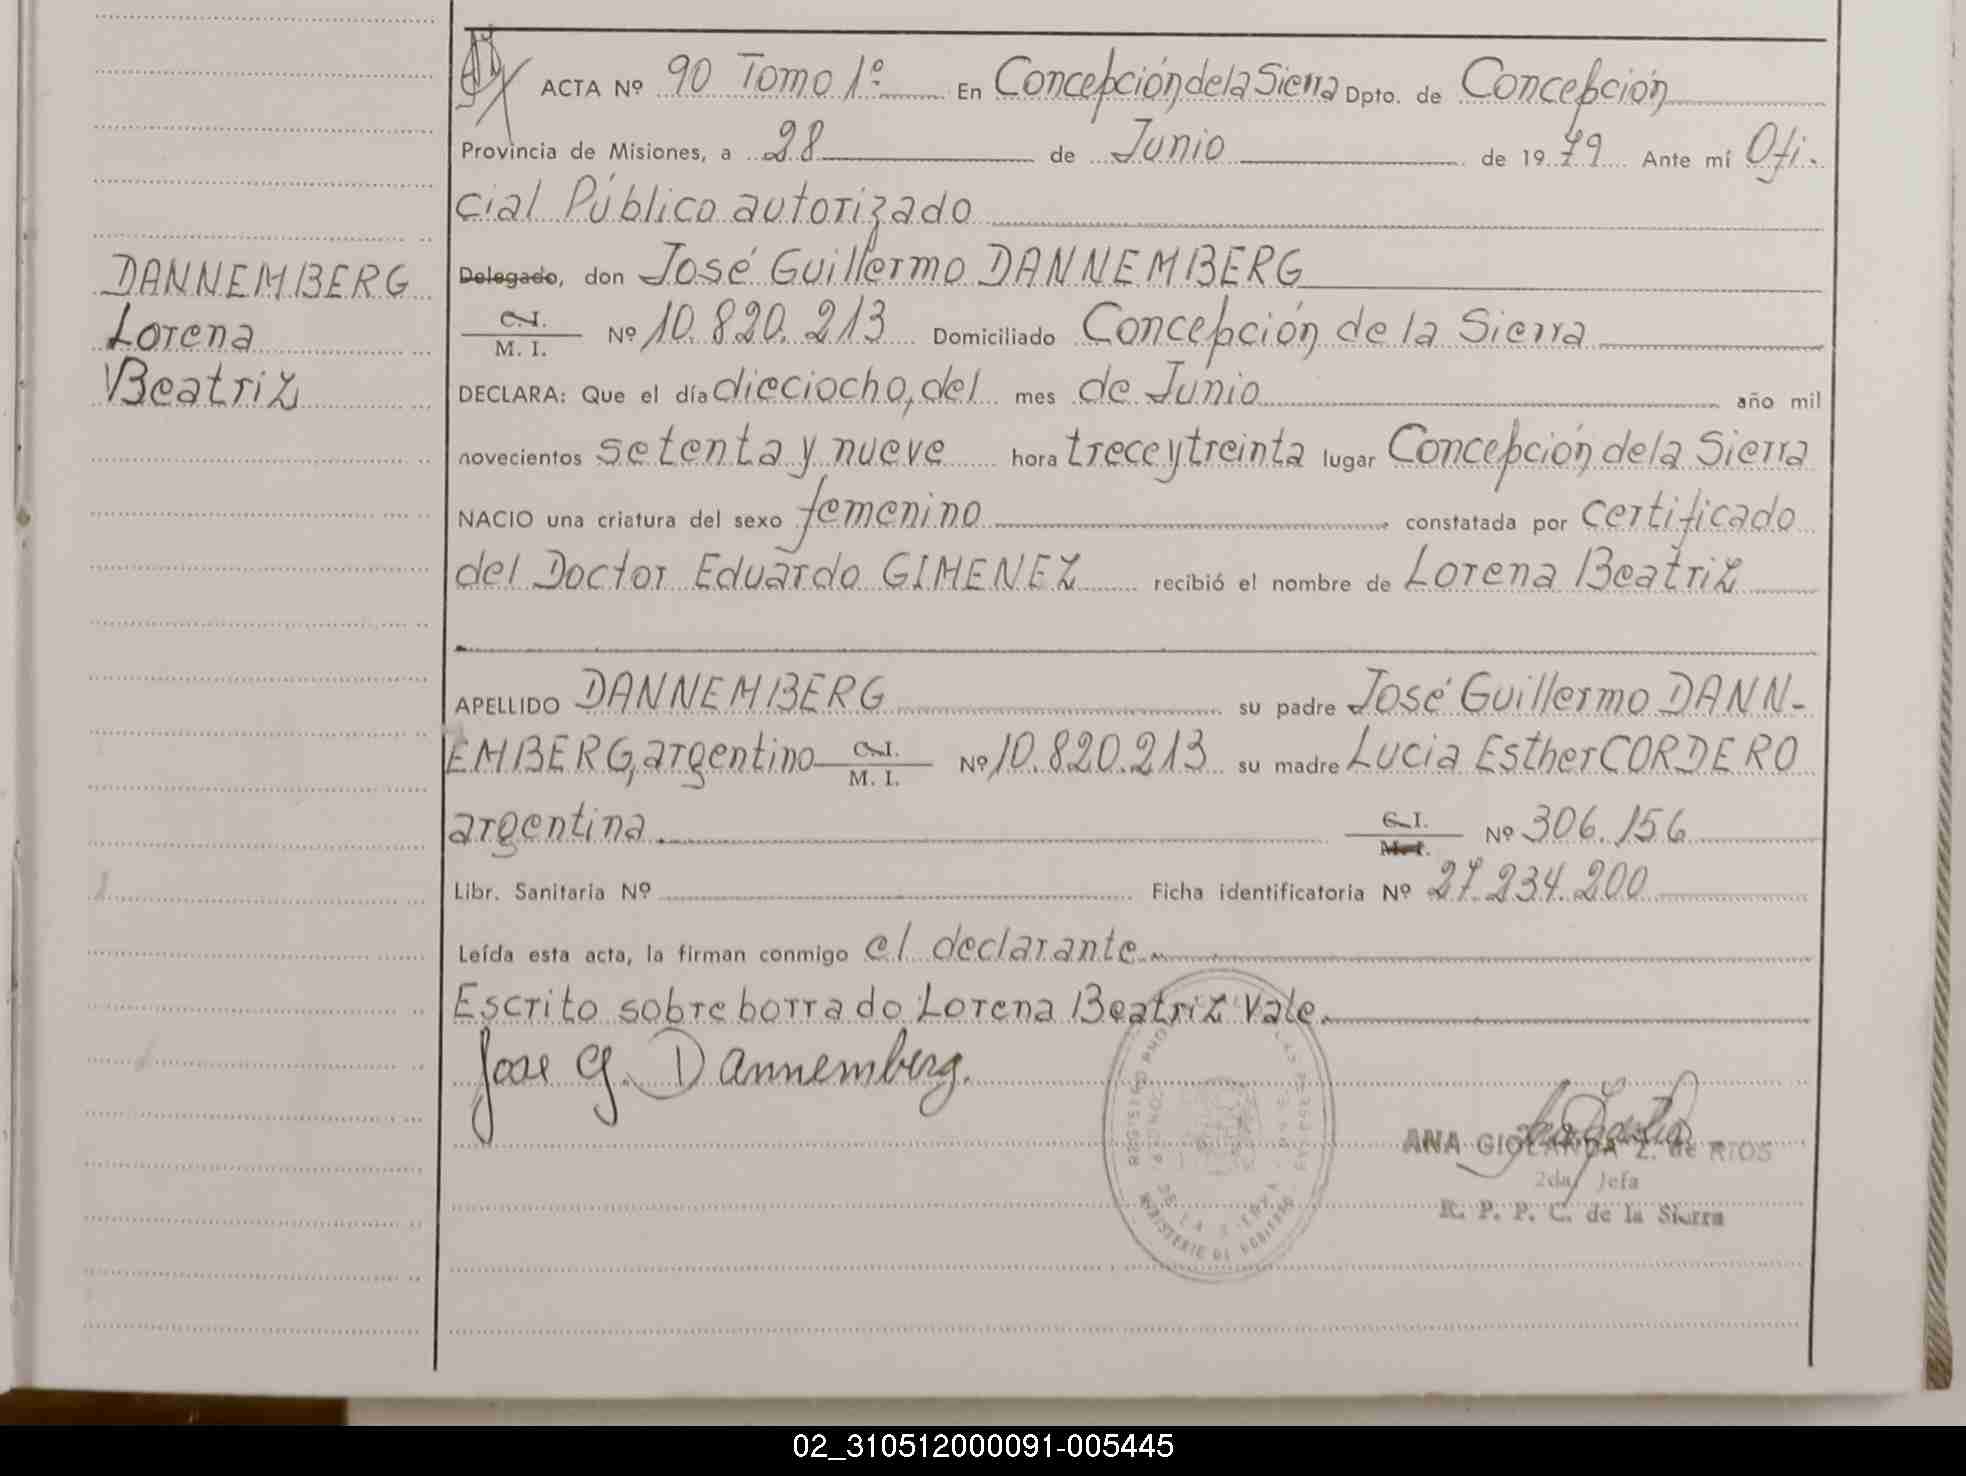 ACTA Nº 90 Tomo 1º En Concepción de la Sierra Dpto. de Concepción
Provincia de Misiones, a 28 de Junio de 1979 Ante mí Ofi-
cial Público autorizado
Delegado, don José Guillermo DANNEMBERG
DANNEMBERG
Lorena
Beatriz
C.I.
M. I. Nº 10.820.213 Domiciliado Concepción de la Sierra
DECLARA: Que el día dieciocho, del mes de Junio año mil
novecientos setenta y nueve hora trece y treinta lugar Concepción de la Sierra
NACIO una criatura del sexo femenino constatada por certificado
del Doctor Eduardo GIMENEZ recibió el nombre de Lorena Beatriz
APELLIDO DANNEMBERG su padre José Guillermo DANN-
EMBERG, argentino C.I. M. I. Nº 10.820.213 su madre Lucia Esther CORDERO
argentina. C.I. M.I. Nº 306.156
Libr. Sanitaria Nº Ficha identificatoria Nº 27.234.200
Leída esta acta, la firman conmigo el declarante.
Escrito sobre borrado Lorena Beatriz Vale.
Jose G. Dannemberg.
ANA GIOLANDA Z. de RIOS
2da. Jefa
R. P. P. C. de la Sierra
REGISTRO PRO
DE LA S
MINISTERIO DE GOBIERNO
02_310512000091-005445